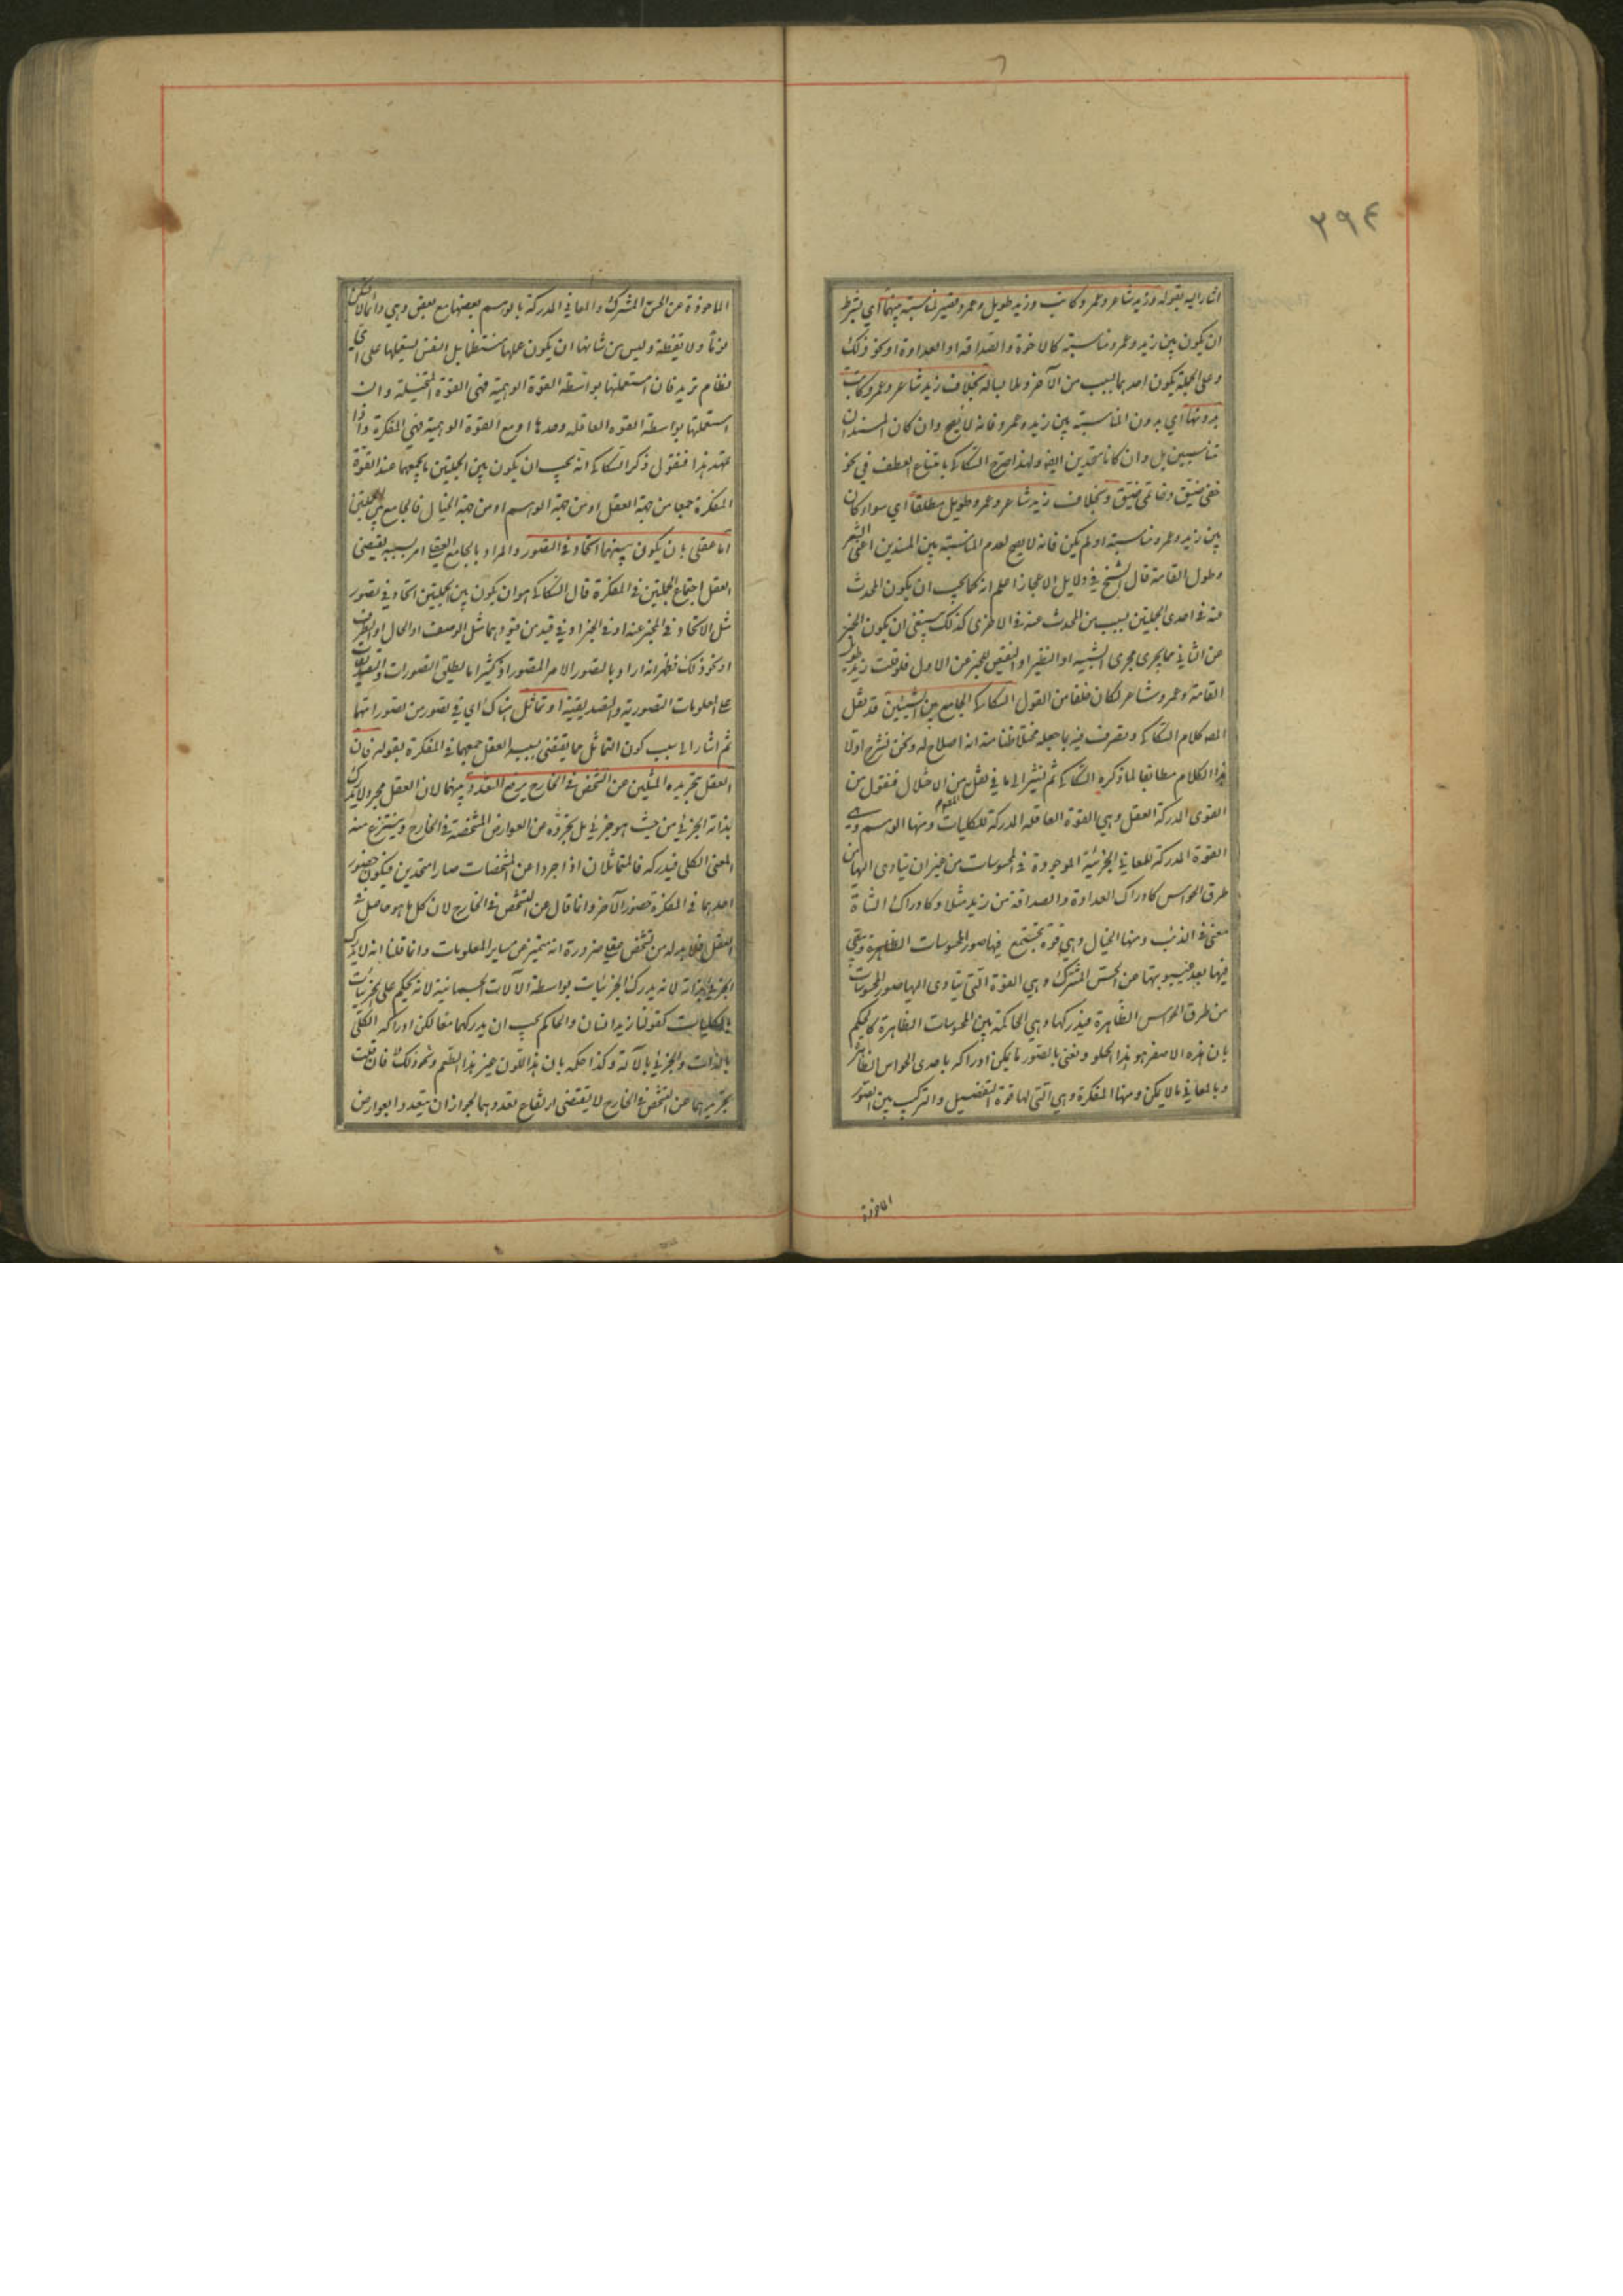 ٢٩٤
اشار اليه بقوله وزيد شاعر وعمرو كاتب وزيد طويل وعمرو قصير لمناسبة بينهما اي بشرط
ان يكون بين زيد وعمرو مناسبة كالاخوة والصداقة او العداوة او نحو ذلك
وعلى الجملة يكون احدهما بسبب من الآخر وملابسا له بخلاف زيد شاعر وعمرو كاتب
بدونها اي بدون المناسبة بين زيد وعمرو فانه لا يصح وان كان المسندان
متناسبين بل وان كانا متحدين ايضا ولهذا صرح السكاكي بامتناع العطف في نحو
خفي ضيق وخاتمي ضيق وبخلاف زيد شاعر وعمرو طويل مطلقا اي سواء كان
بين زيد وعمرو مناسبة او لم يكن فانه لا يصح لعدم المناسبة بين المسندين اعني الشعر
وطول القامة قال الشيخ في دلايل الاعجاز اعلم انه كما يجب ان يكون المحدث
عنه في احدى الجملتين بسبب من المحدث عنه في الاخرى كذلك ينبغي ان يكون الخبر
عن الثاني مما يجري مجرى الشبيه او النظير او النقيض للخبر عن الاول فلو قلت زيد طويل
القامة وعمرو شاعر لكان خلفا من القول السكاكي الجامع بين الشيئين قد نقل
المصـ كلام السكاكي وتصرف فيه بما جعله مختلا ظنا منه انه اصلاح له ونحن نشرح اولا
هذا الكلام مطابقا لما ذكره السكاكي ثم نشير الى ما في نقل من الاختلال فنقول من
القوى المدركة العقل وهي القوة العاقلة المدركة للكليات ومنها الوهم وهي
القوة المدركة للمعاني الجزئية الموجودة في المحسوسات من غير ان يتادى اليها من
طرق الحواس كادراك العداوة والصداقة من زيد مثلا وكادراك الشاة
معنى في الذئب ومنها الخيال وهي قوة تجتمع فيها صور المحسوسات الظاهرة وتبقى
فيها بعد غيبوبتها عن الحس المشترك وهي القوة التي يتادى اليها صور المحسوسات
من طرق الحواس الظاهرة فيدركها وهي الحاكمة بين المحسوسات الظاهرة كالحكم
بان هذه الاصفر هو هذا الحلو ونعني بالصور ما يمكن ادراكه باحدى الحواس الظاهرة
وبالمعاني ما لا يمكن ومنها المفكرة وهي التي لها قوة التفصيل والتركيب بين الصور
الماخوذة
الماخوذة عن الحس المشترك والمعاني المدركة بالوهم بعضها مع بعض وهي دائما لا تسكن
نوما ولا يقظة وليس من شانها ان يكون عملها منتظما بل النفس يستعملها على اي
نظام تريد فان استعملتها بواسطة القوة الوهمية فهي القوة المتخيلة وان
استعملتها بواسطة القوة العاقلة وحدها او مع القوة الوهمية فهي المفكرة واذا
تمهد هذا فنقول ذكر السكاكي انه يجب ان يكون بين الجملتين ما يجمعهما عند القوة
المفكرة جمعا من جهة العقل او من جهة الوهم او من جهة الخيال فالجامع بين الجملتين
اما عقلي بان يكون بينهما اتحاد في التصور والمراد بالجامع العقلي امر بسببه يقتضي
العقل اجتماع الجملتين في المفكرة قال السكاكي هو ان يكون بين الجملتين اتحاد في تصور
مثل الاتحاد في المخبر عنه او في الخبر او في قيد من قيودهما مثل الوصف او الحال او الظرف
او نحو ذلك فظهر انه اراد بالتصور الامر المتصور اذ كثيرا ما يطلق التصورات والتصديقات
على المعلومات التصورية والتصديقية او تماثل هناك اي في تصور من تصوراتهما
ثم اشار الى سبب كون التماثل مما يقتضي بسببه العقل جمعهما في المفكرة بقوله فان
العقل بتجريده المثلين عن التشخص في الخارج يرفع التعدد بينهما لان العقل مجرد لا يدرك
بذاته الجزئي من حيث هو جزئي بل يجرده عن العوارض المشخصة في الخارج وينتزع منه
المعنى الكلي فيدركه فالمتماثلان اذا جردا عن المشخصات صارا متحدين فيكون حضور
احدهما في المفكرة حضور الآخر وانما قال عن التشخص في الخارج لان كل ما هو حاصل في
العقل فلا بد له من تشخص عقلي ضرورة انه متميز عن ساير المعلومات وانما قلنا انه لا يدرك
الجزئي بذاته لانه يدرك الجزئيات بواسطة الآلات الجسمانية لانه يحكم على الجزئيات
بالكليات كقولنا زيد انسان والحاكم يجب ان يدركهما معا لكن ادراكه الكلي
بالذات والجزئي بالآلة وكذا حكمه بان هذا اللون غير هذا الطعم ونحو ذلك فان قلت
تجريدهما عن التشخص في الخارج لا يقتضي ارتفاع تعددهما لجواز ان يتعدد بعوارض